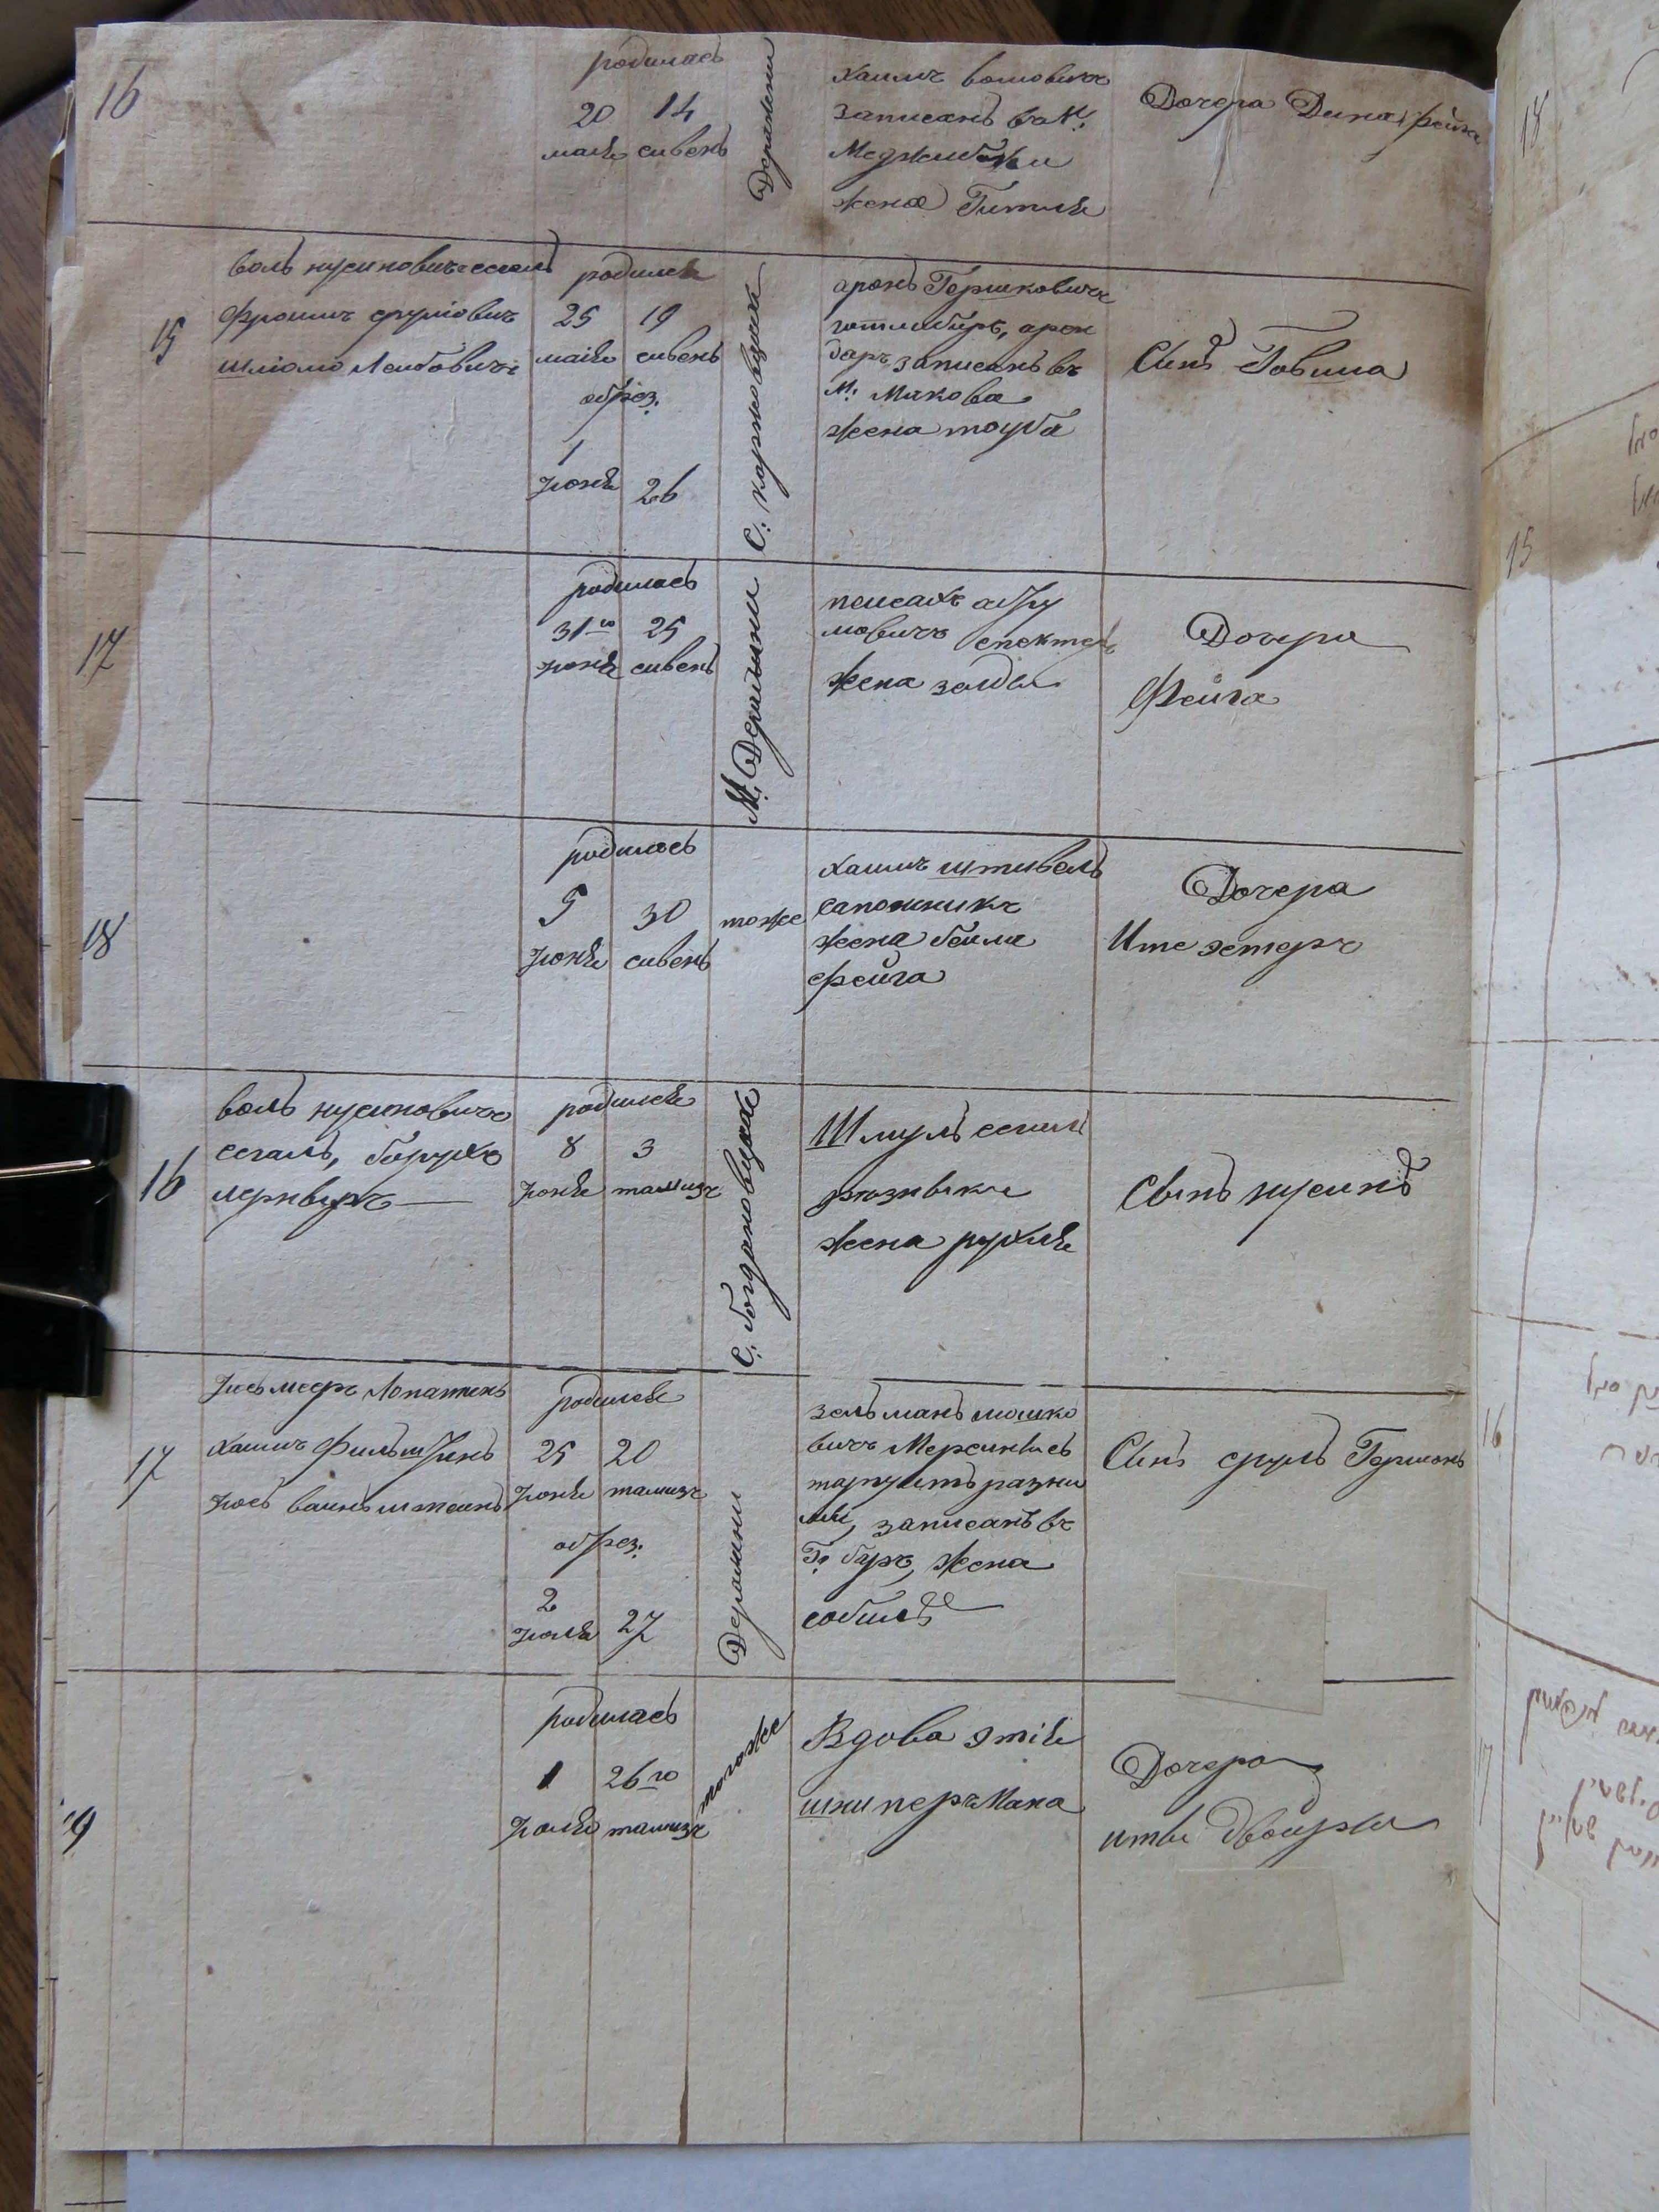 16
родилась
20 14
маія сивень
Деражни
хаимъ волѡвичъ
записанъ в м:
Меджибожи
жена Гитля
Дочера Дина фейга
15
воль нусиновичъ сегаль
Фроимъ сруліовичъ
шліомо Лейбовичъ
родился
25 19
маія сивень
обрез:
1
Іюня 26
С: карповцахъ
аронъ Гершковичъ
готлибуръ, арен
даръ записанъ въ
м: Макова
жена тоуба
Сынъ Говша
17
родилась
31го 25
сивень
М: Деражни
пейсахъ абру
мовичъ спекторъ
жена
Дочера
Фейга
18
родилась
5 30
Іюня сивень
тоже
хаимъ штивель
сапожникъ
жена бейла
фейга
Дочера
Ите эстеръ
16
воль нусиновичъ
сегаль, борухъ
лернеръ
родился
8 3
Іюня тамизъ
С: богдановцахъ
Шмуль сегаль
резныкъ
жена рухля
Сынъ нусинъ
17
Іось мееръ Лопатинъ
хаимъ Фильштинъ
Іось вайнштейнъ
родился
25 20
Іюня тамизъ
обрез:
2
Іюля 27
Деражни
зельманъ мошко
вичъ
торгуетъ разни
ми, записанъ въ
Г: баръ, жена
собиль
Сынъ сруль Гершонъ
19
родилась
1 26го
Іюля тамизъ
тогоже
Вдова Этія
шниперъмана
Дочера
иты двойра
18
15
16
17